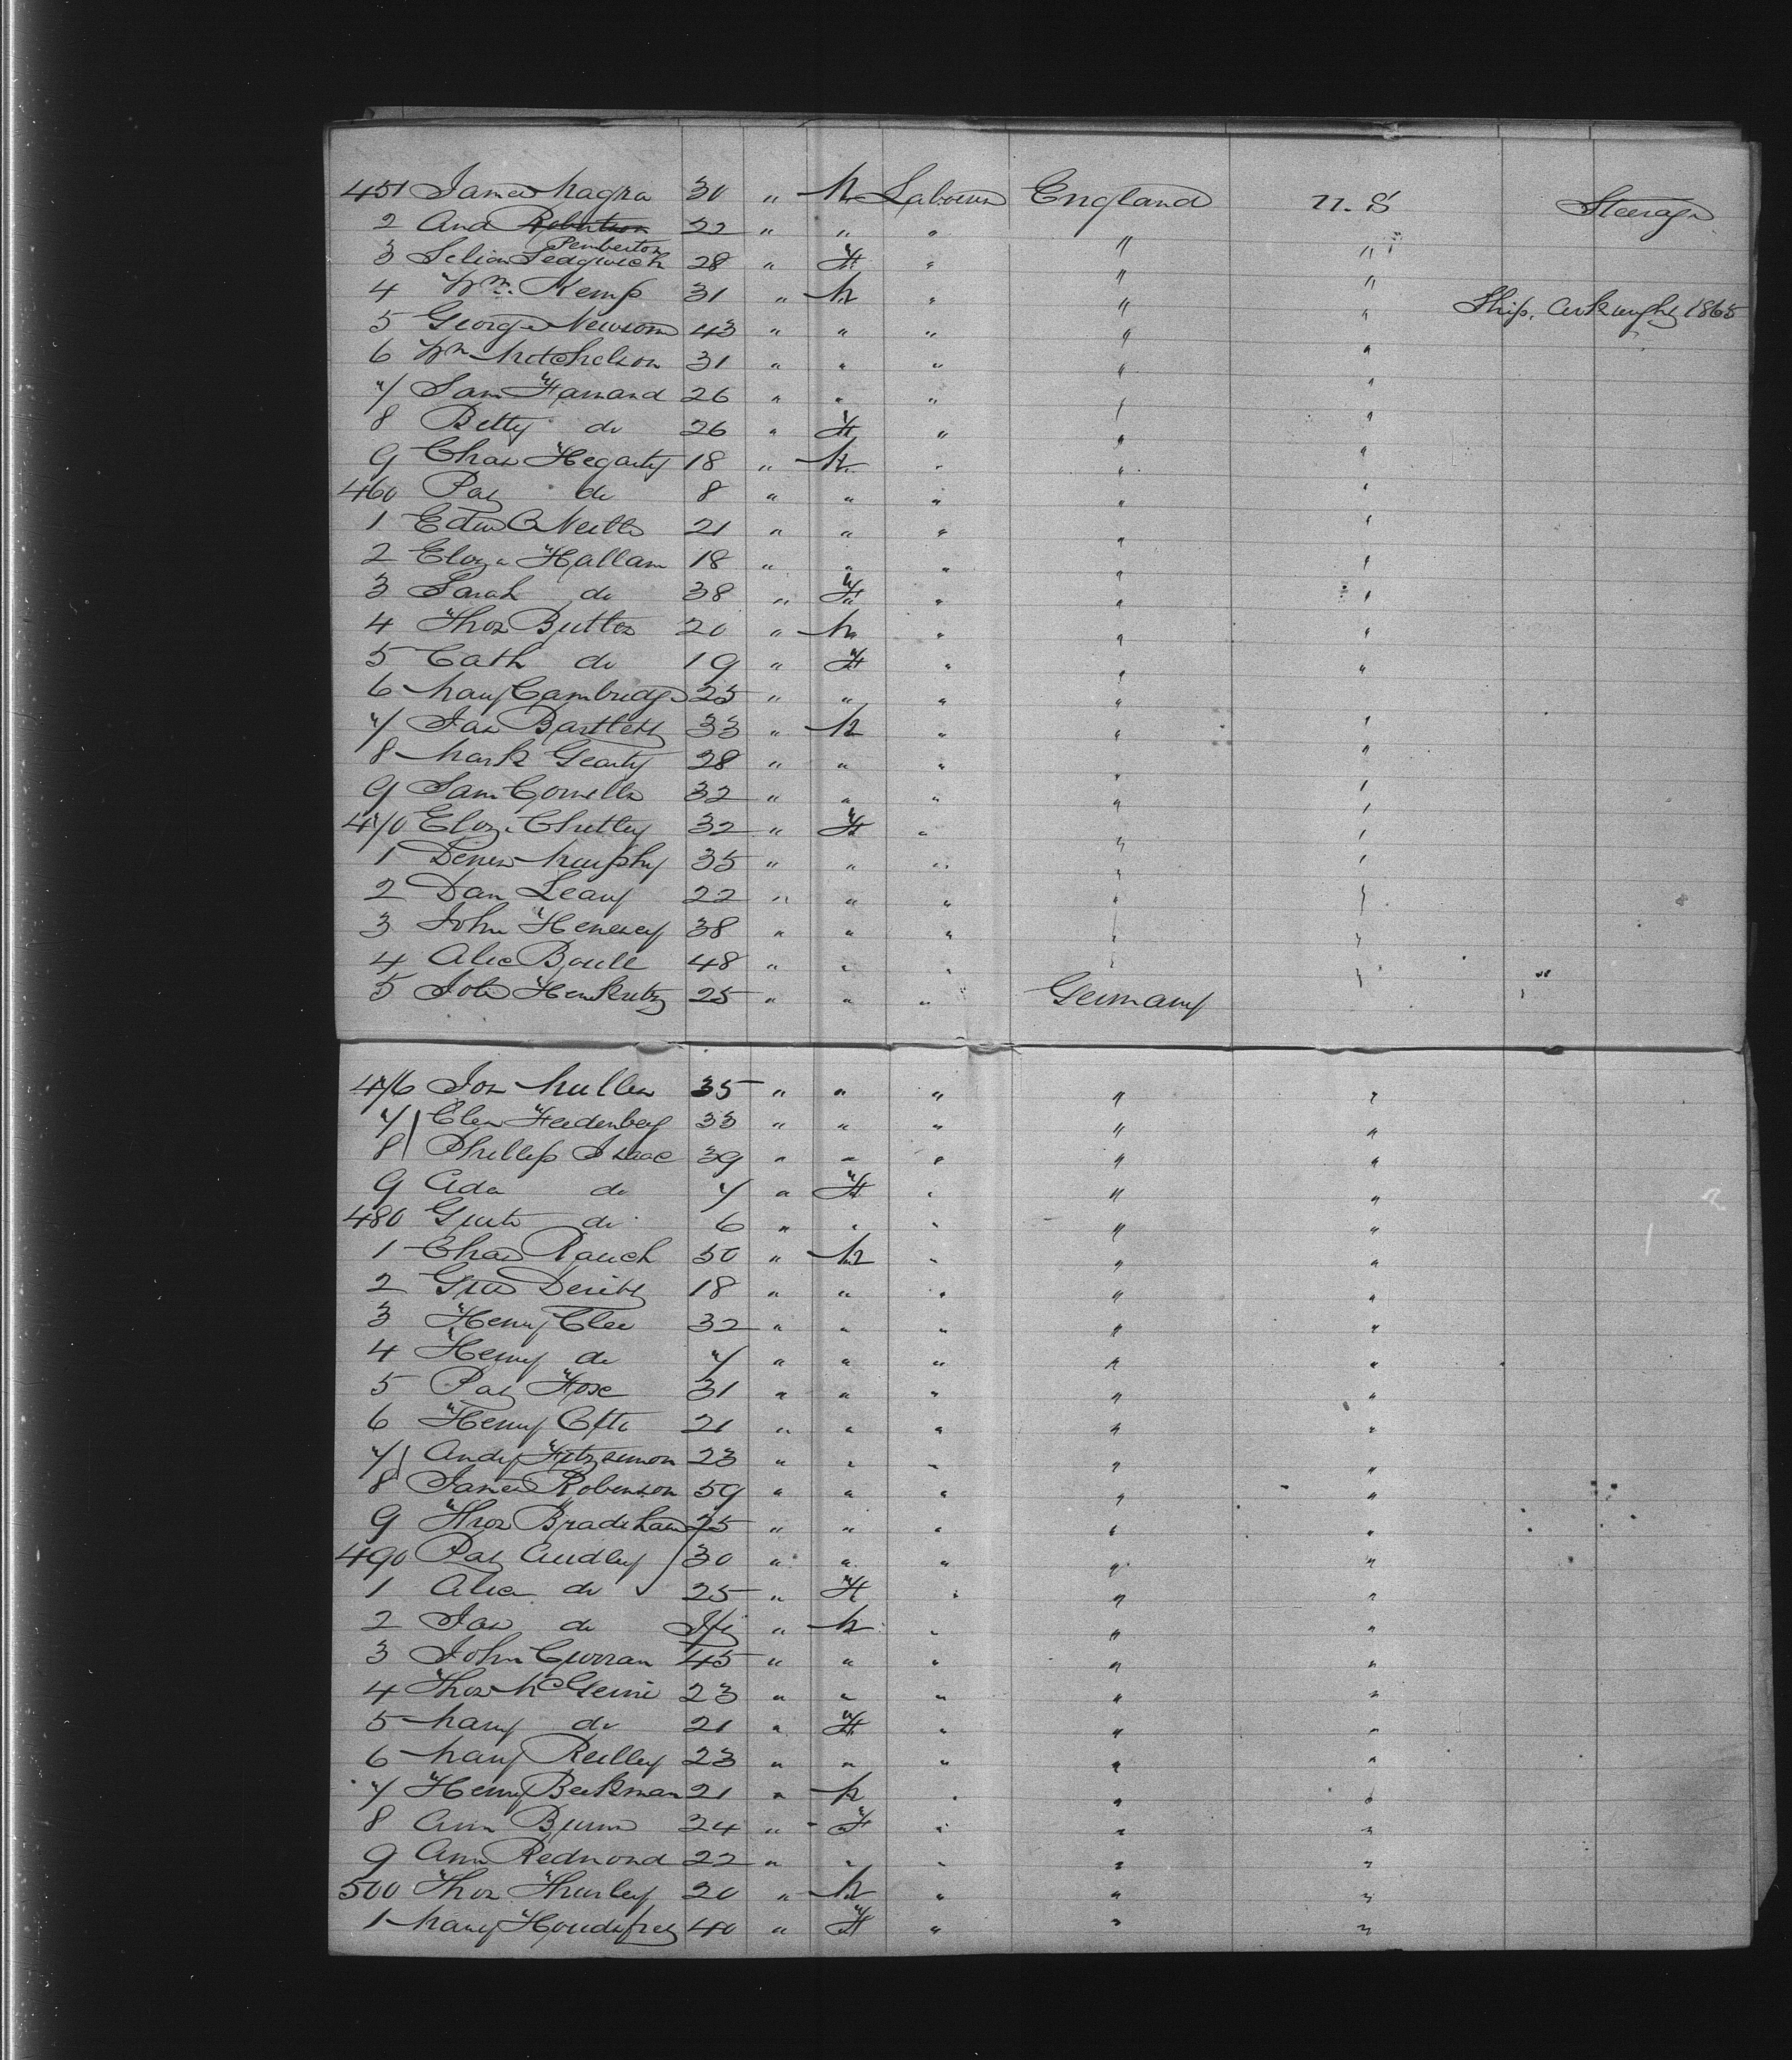 451 James Magra 30 " M Labourer England U. S Steerage
2 And Robertson Pemberton 22 " " " " "
3 Selian Sedgwick 28 " F " " "
4 Wm. Kemp 31 " M " " " Ship. Arkwright 1865
5 George Newsom 43 " " " " "
6 Wm Mitchelson 31 " " " " "
7 Sam Farrand 26 " " " " "
8 Betty do 26 " F " " "
9 Chas Hegarty 18 " M " " "
460 Pat do 8 " " " " "
1 Edw O Neill 21 " " " " "
2 Eliza Hallam 18 " " " " "
3 Sarah do 38 " F " " "
4 Thos Butler 20 " M " " "
5 Cath do 19 " F " " "
6 Mary Cambridge 25 " " " "
7 Jas Bartlett 33 " M " " "
8 Mark Gearty 28 " " " " "
9 Sam Cornell 32 " " " " "
470 Eliz. Chutley 32 " F " " "
1 Denis Murphy 35 " " " " "
2 Dan Leary 22 " " " " "
3 John Henesey 38 " " " " "
4 Alic 48 " " " " " "
5 Joh 25 " " " Germany " "
476 Jos Muller 35 " " " " "
7 33 " " " " "
8 Phillip Isaac 39 " " " " "
9 Ada do 7 " F " " "
480 do 6 " " " " "
1 Chas Rauch 50 " M " " "
2 18 " " " " "
3 Henry Clee 32 " " " " "
4 Henry do 7 " " " " "
5 Pat 31 " " " " "
6 Henry Otto 21 " " " " "
7 Andy Fitzsimon 23 " " " " "
8 James Robinson 59 " " " " "
9 Thos Bradshaw 25 " " " " "
490 Pat Audley 30 " " " " "
1 Alice do 25 " F " " "
2 Jas do Inf " M " " "
3 John Curran 45 " " " " "
4 Thos 23 " " " " "
5 Mary do 21 " F " " "
6 Mary Reilley 23 " " " " "
7 Henry Beekman 21 " M " " "
8 Ann Byrne 24 " F " " "
9 Ann Redmond 22 " " " " "
500 Thos Thurley 20 " M " " "
1 Mary 40 " F " " "